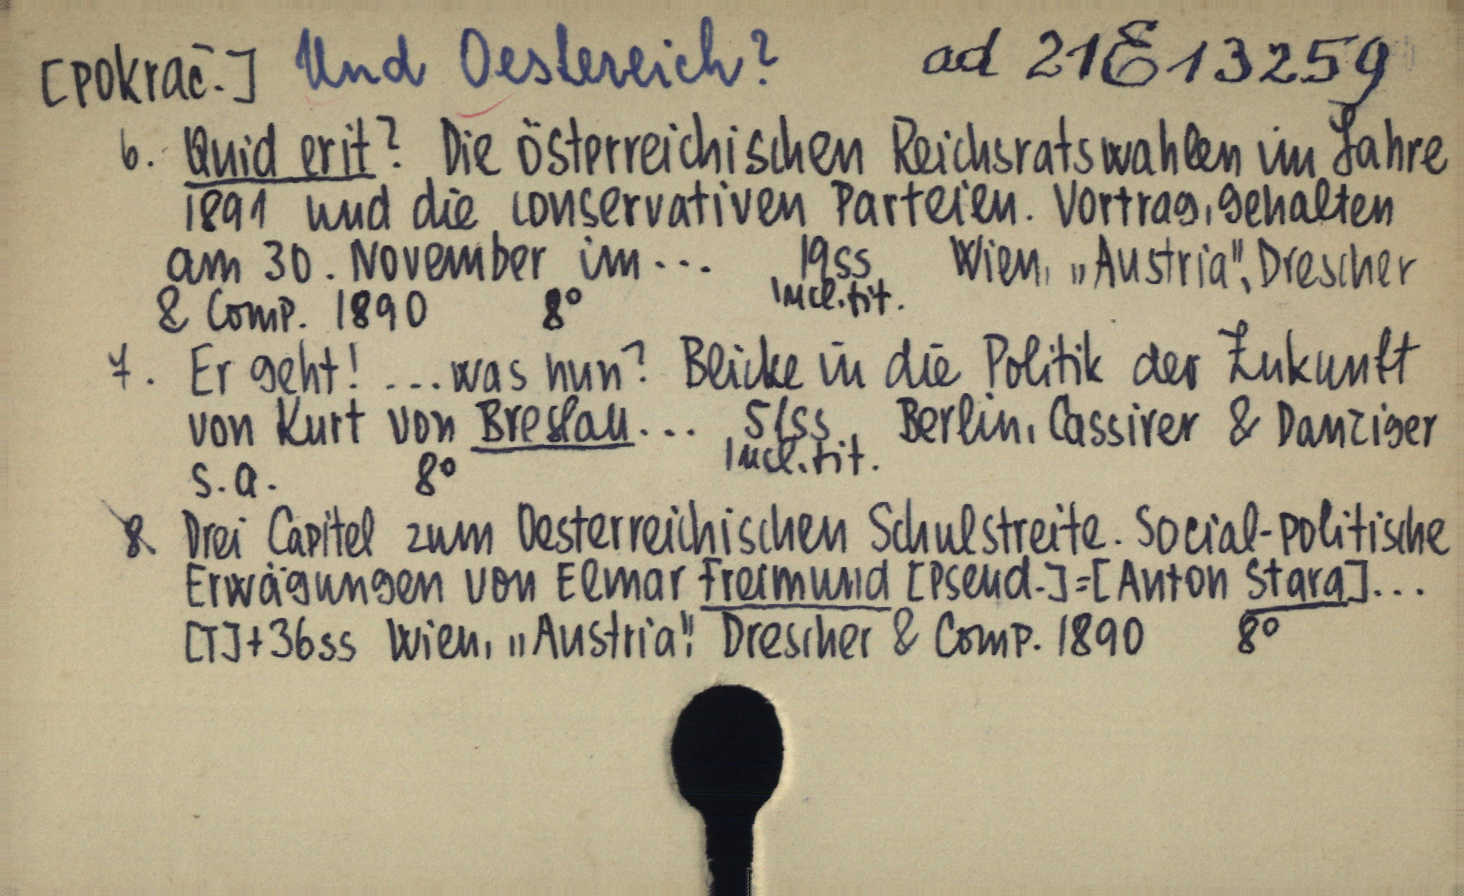 [pokrač.] Und Oestereich? ad 21E13259
6. Quid erit? Die österreichischen Reichsratswahlen im Jahre
1891 und die conservativen Parteien. Vortrag, gehalten
am 30. November im ... 19ss Wien, „Austria", Drescher
incl. tit.
& Comp. 1890 8°
7. Er geht! ... was nun? Blicke in die Politik der Zukunft
von Kurt von Breslau ... 51ss Berlin, Cassirer & Danziger
incl. tit.
s.a. 8°
8. Drei Capitel zum Oesterreichischen Schulstreite. Social-politische
Erwägungen von Elmar Freimund [pseud.]=[Anton Stara] ...
[I]+36ss Wien, „Austria". Drescher & Comp. 1890 8°